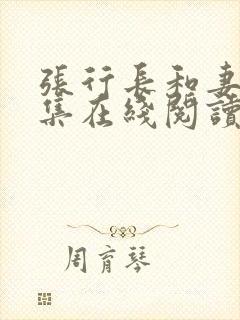 張行長和妻
集在綫閱讀
周育琴